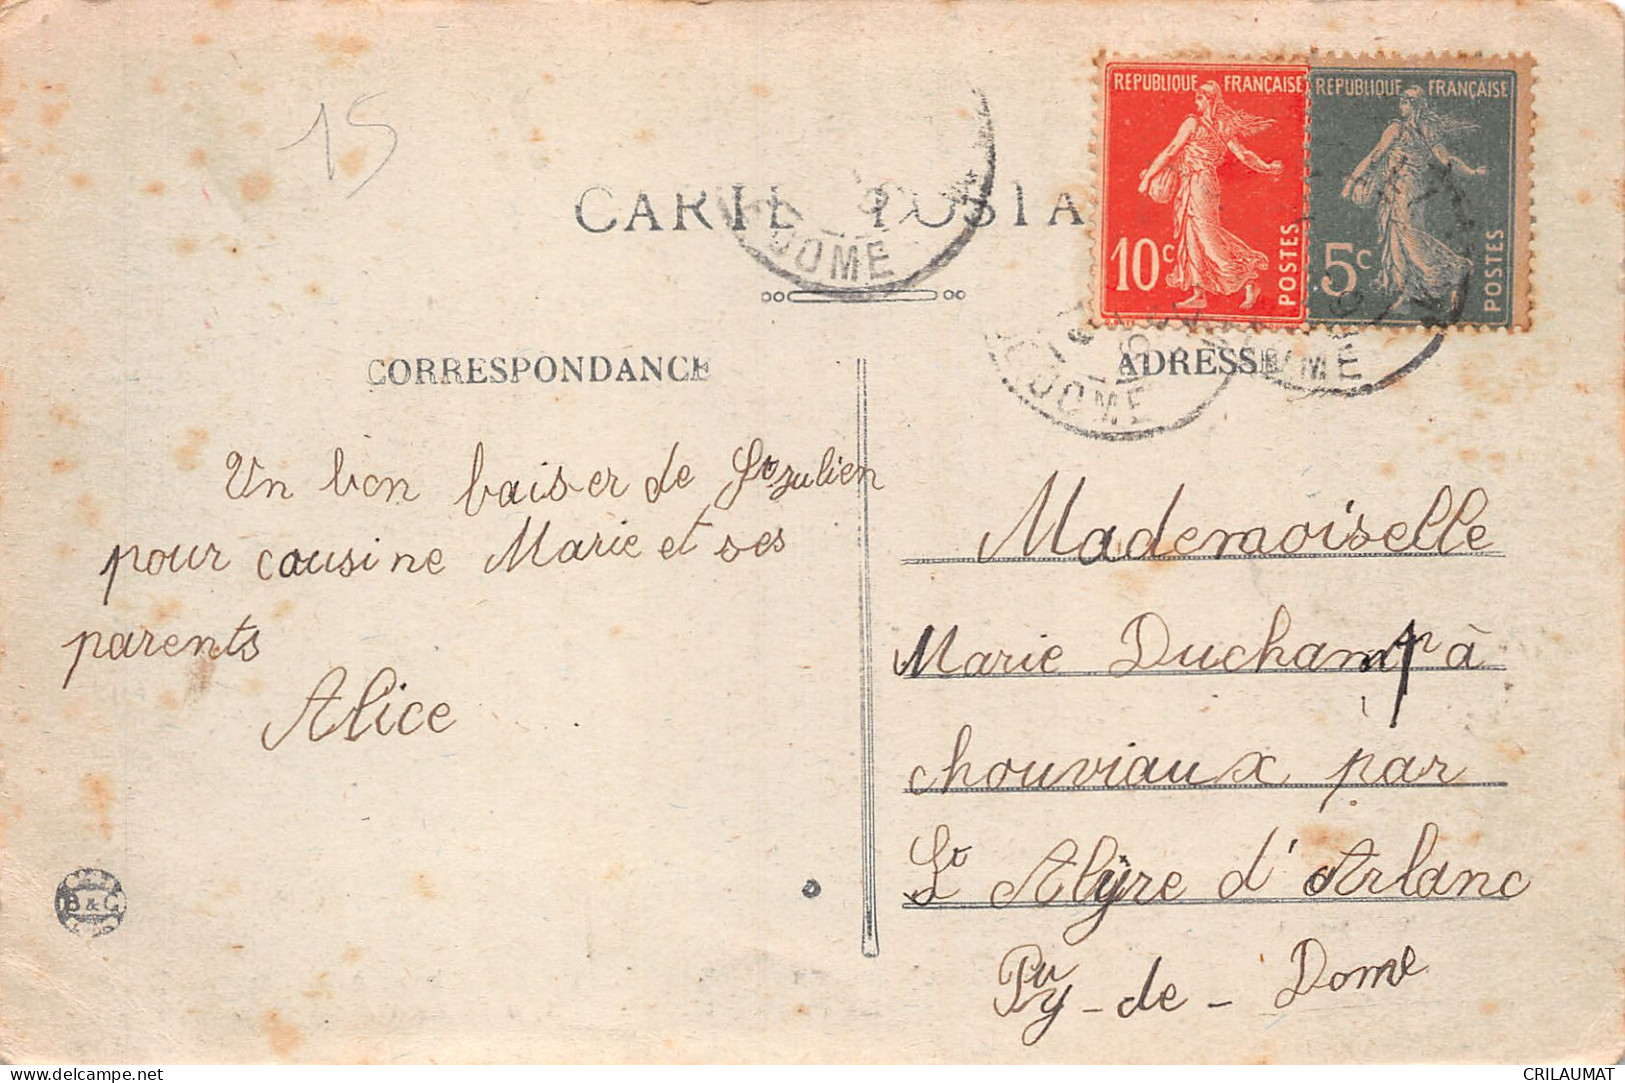 15
CARTE POSTA
DOME
REPUBLIQUE FRANÇAISE
10c
POSTES
REPUBLIQUE FRANÇAISE
.5c
POSTES
DOME
OME
CORRESPONDANCE
ADRESSE
Un bon baiser de St Julien
pour cousine Marie et ses
parents
Alice
Mademoiselle
Marie Duchamp à
chouviaux par
St Alyre d'Arlanc
Puy-de-Dome
B & G
delcampe.net
CRILAUMAT